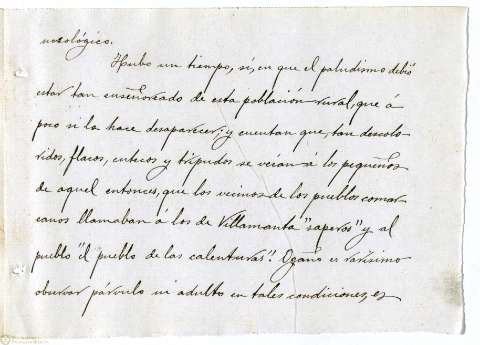 nosológico.
Hubo un tiempo, sí, en que el paludismo debió
estar tan enseñoreado de esta población rural, que á
poco si la hace desaparecer; y cuentan que, tan descolo-
ridos, flacos, entecos y tripudos se veían á los pequeños
de aquel entonces, que los vecinos de los pueblos comar-
canos llamaban á los de Villamanta "saperos" y al
pueblo "el pueblo de las calenturas". Ogaño es rarísimo
observar párvulo ni adulto en tales condiciones, es